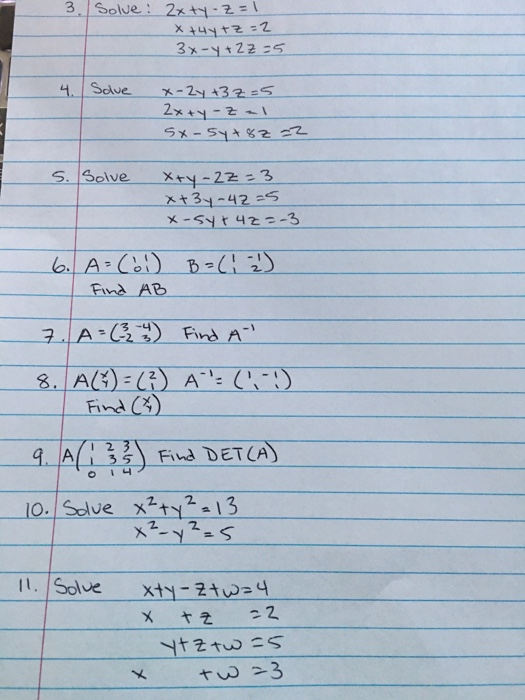 3. Solve: 2x+y-z=1
x+4y+z=2
3x-y+2z=5
4. Solve x-2y+3z=5
2x+y-z=1
5x-5y+8z=2
5. Solve x+y-2z=3
x+3y-4z=5
x-5y+4z=-3
6. A=(1 1
0 1) B=(1 -1
1 2)
Find AB
7. A=(3 -4
-2 3) Find A⁻¹
8. A(x
y)=(2
1) A⁻¹=(1 -1
1 1)
Find (x
y)
9. A(1 2 3
1 3 5
0 1 4) Find DET(A)
10. Solve x²+y²=13
x²-y²=5
11. Solve x+y-z+w=4
x +z =2
y+z+w=5
x +w=3